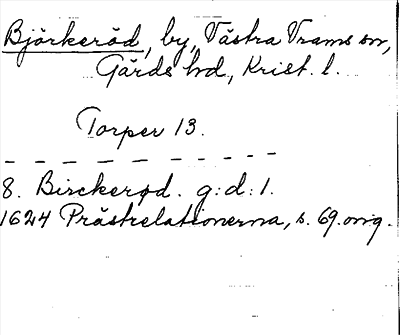 Björkeröd, by, Västra Vrams sn,
Gärds hd, Krist. l.
Torper 13.
8. Birckerød. g:d:1.
1624 Prästrelationerna, s. 69. orig.